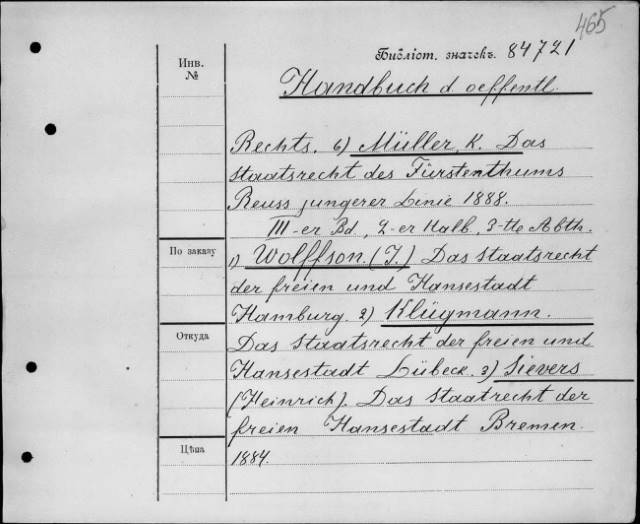 465
Библіот. значекъ. 84721
Инв.
№
Handbuch d oeffentl.
Rechts. 6) Müller, K. Das
Staatsrecht des Fürstenthums
Reuss jungerer Linie 1888.
III-er Bd., 2-er Halb., 3-tte Abth.
По заказу
1) Wolffson. (I.) Das Staatsrecht
der freien und Hansestadt
Hamburg. 2) Klügmann.
Откуда
Das Staatsrecht der freien und
Hansestadt Lübeck. 3) Sievers
(Heinrich). Das Staatrecht der
freien Hansestadt Bremen.
Цѣна
1884.